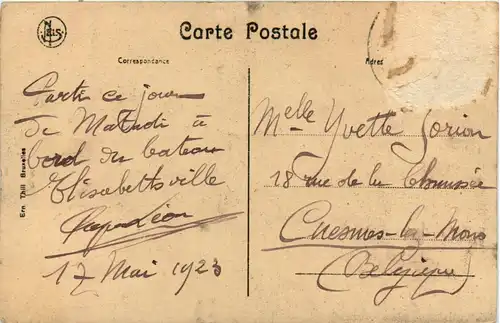 Carte Postale
Correspondance
Adres
Parti ce jour
de Matadi à
bord du bateau
Elisabethville
Léon
17 Mai 1923
Melle Yvette Dorion
18 rue de la Chaussée
Cuesmes-lez-Mons
(Belgique)
Ern Thill Bruxelles